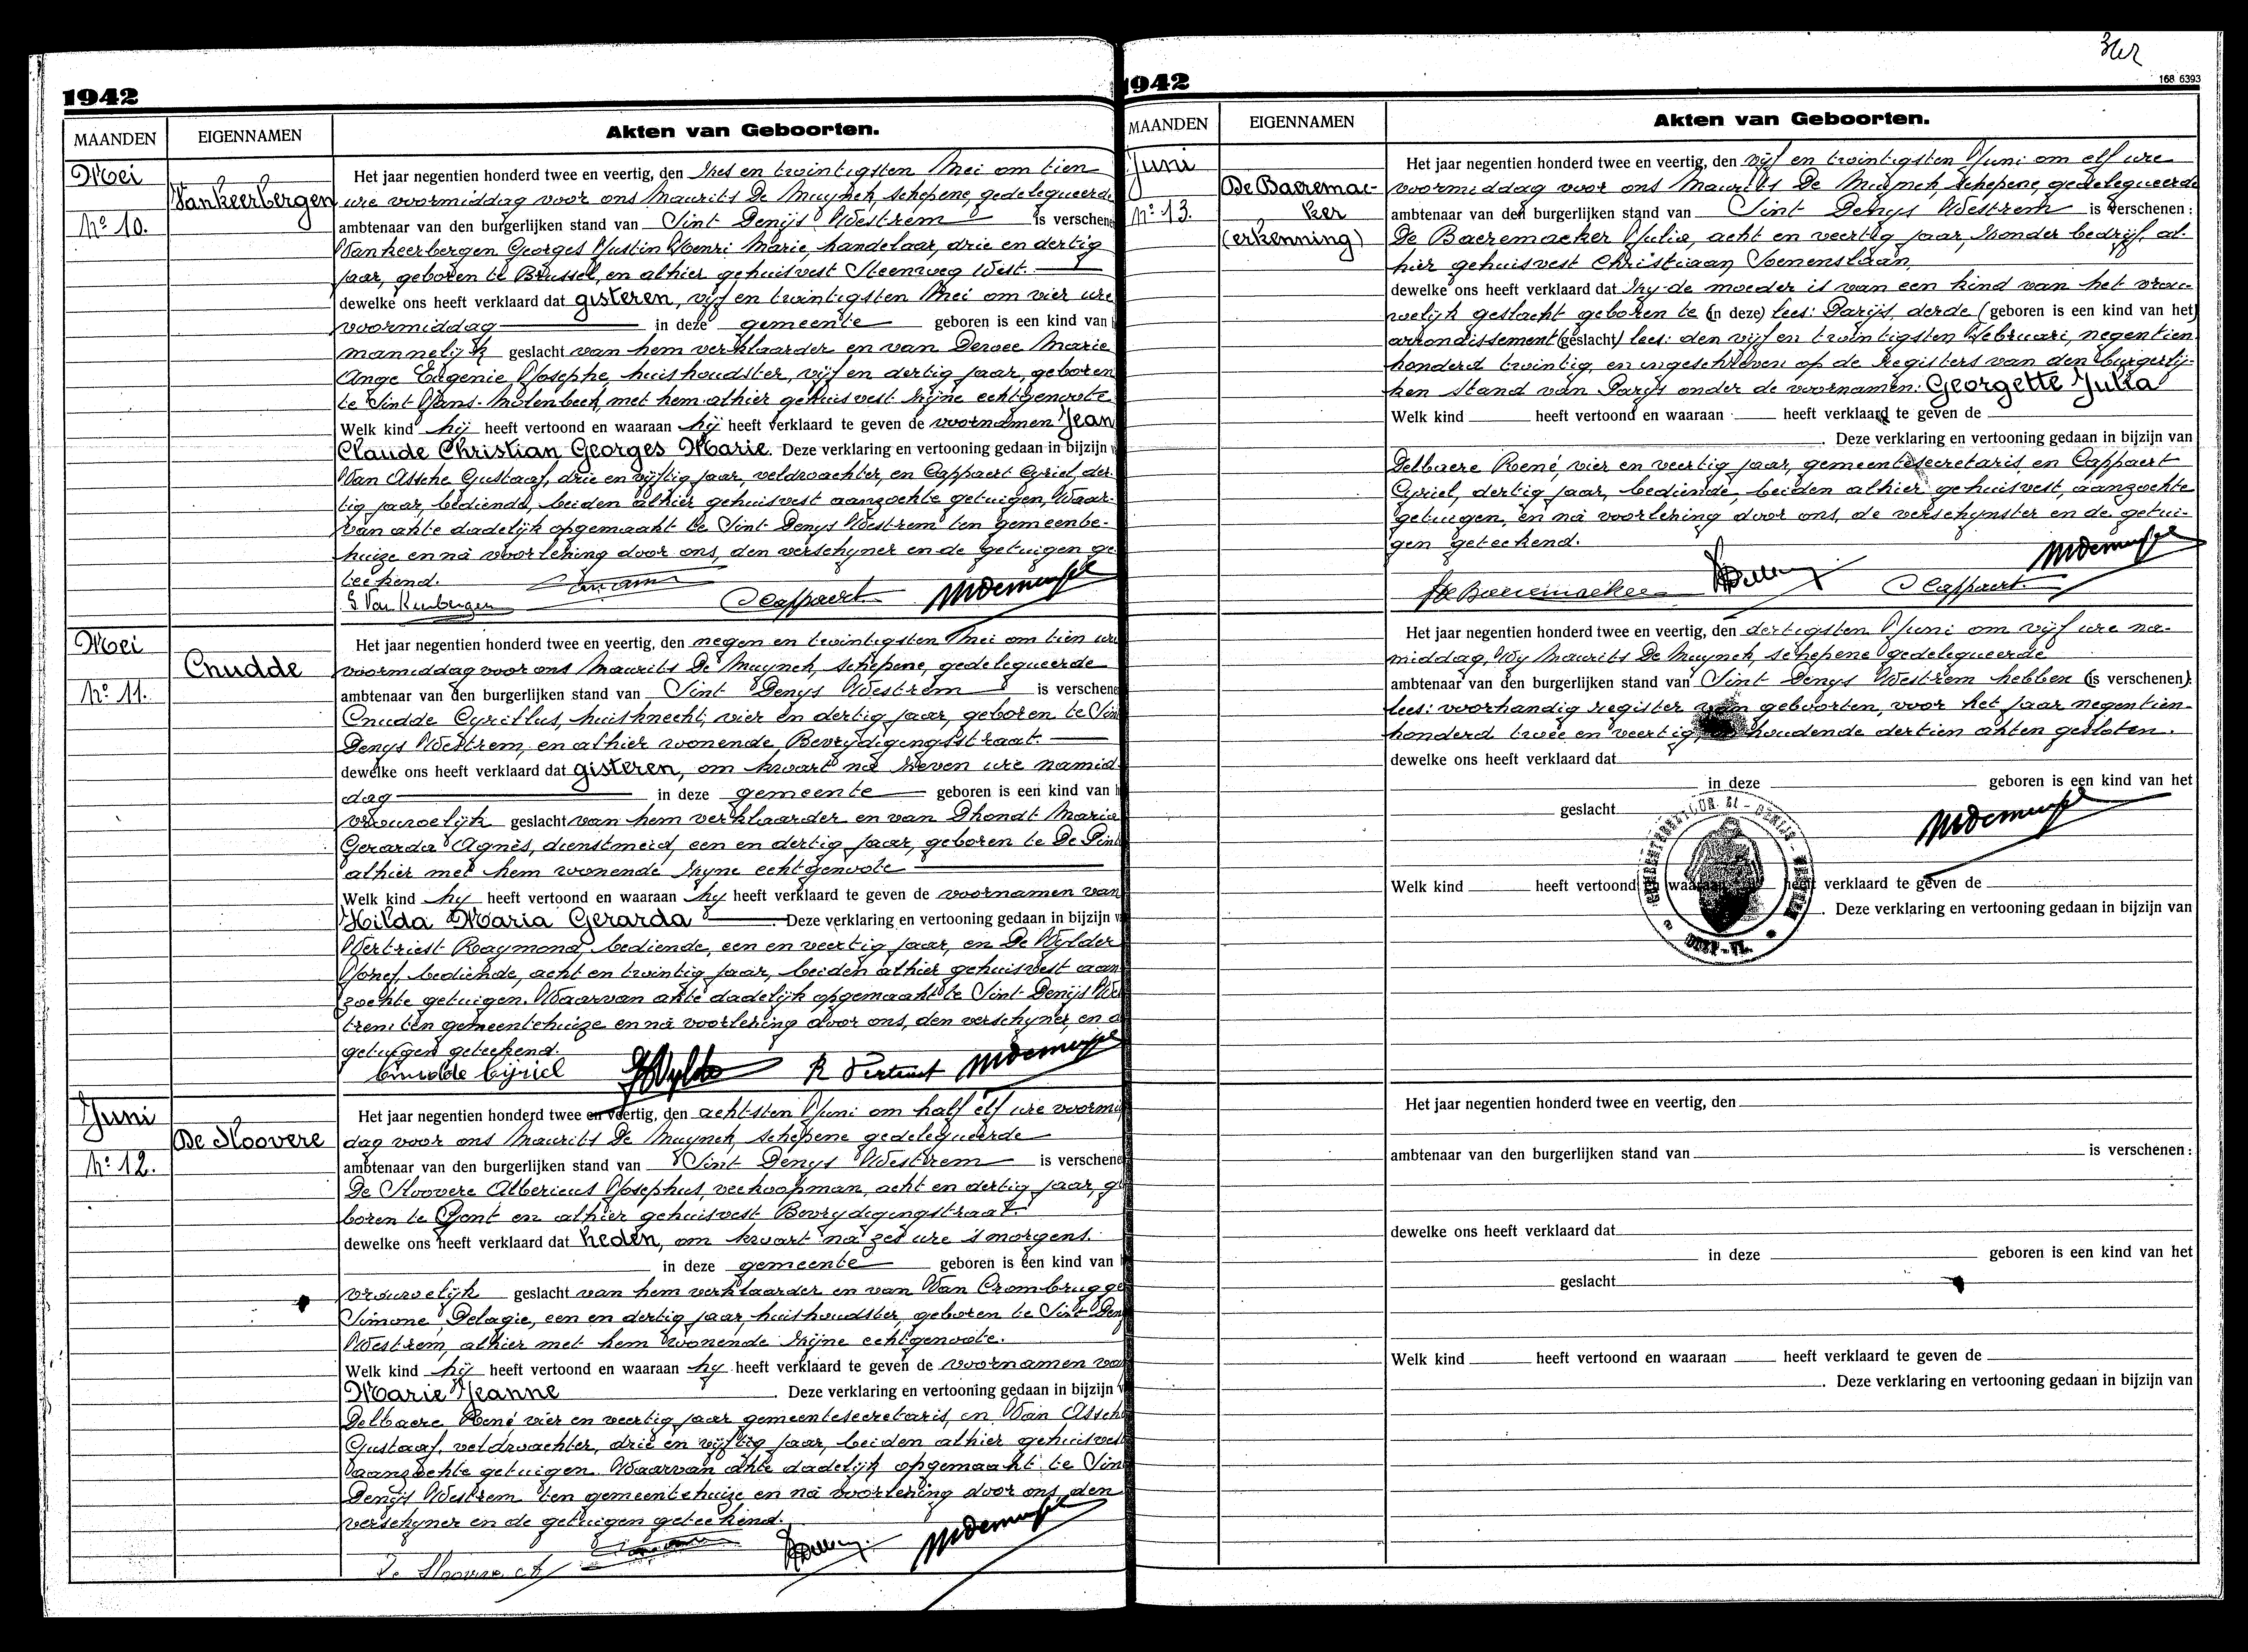 1942
MAANDEN
EIGENNAMEN
Akten van Geboorten.
Mei
Vankeerbergen
No 10.
Het jaar negentien honderd twee en veertig, den zes en twintigsten Mei om tien
ure voormiddag voor ons Maurits De Muynck, schepene, gedelegueerde
ambtenaar van den burgerlijken stand van Sint Denijs Westrem is verschene
Vankeerbergen Georges Justin Henri Marie, handelaar, drie en dertig
jaar, geboren te Brussel, en alhier gehuisvest Steenweg West.
dewelke ons heeft verklaard dat gisteren, vijf en twintigsten Mei om vier ure
voormiddag in deze gemeente geboren is een kind van
mannelijk geslacht van hem verklaarder en van Marie
Ange Eugenie Josephe, huishoudster, vijf en dertig jaar, geboren
te Sint Jans-Molenbeek, met hem alhier gehuisvest zijne echtgenoote
Welk kind hij heeft vertoond en waaraan hij heeft verklaard te geven de voornamen Jean
Claude Christian Georges Marie. Deze verklaring en vertooning gedaan in bijzijn
Van Assche Gustaaf, drie en vijftig jaar, veldwachter, en Cappaert Cyriel, der-
tig jaar, bediende, beiden alhier gehuisvest aanzochte getuigen, Waar-
van akte dadelijk opgemaakt te Sint Denys Westrem ten gemeenbe-
huize en na voorlezing door ons, den verschyner en de getuigen ge
teekend.
G. Van Keerbergen
C Cappaert
Mei
Cnudde
No 11.
Het jaar negentien honderd twee en veertig, den negen en twintigsten Mei om tien ure
voormiddag voor ons Maurits De Muynck, schepene, gedelegueerde
ambtenaar van den burgerlijken stand van Sint Denys Westrem is verschene
Cnudde Cyrillus, huisknecht, vier en dertig jaar, geboren te Sin
Denys Westrem, en alhier wonende, Bevrydigingsstraat.
dewelke ons heeft verklaard dat gisteren, om kwart na zeven ure namid
dag in deze gemeente geboren is een kind van h
vrouwelijk geslacht van hem verklaarder en van Dhondt Maria
Gerarda Agnès, dienstmeid, een en dertig jaar, geboren te De Pint
alhier met hem wonende zyne echtgenoote
Welk kind hy heeft vertoond en waaraan hy heeft verklaard te geven de voornamen van
Hilda Maria Gerarda Deze verklaring en vertooning gedaan in bijzijn v
Vertriest Raymond, bediende, een en veertig jaar, en De Wylder
Jozef, bediende, acht en twintig jaar, beiden alhier gehuisvest aan
zochte getuigen. Waarvan akte dadelijk opgemaakt te Sint Denijs Wes
trem ten gemeentehuize en na voorlezing door ons, den verschyner, en d
getuigen geteekend.
Cnudde Cijriel
R Vertriest
Juni
De Hoovere
No 12.
Het jaar negentien honderd twee en veertig, den achtsten Juni om half elf ure voormid
dag voor ons Maurits De Muynck, schepene gedelegueerde
ambtenaar van den burgerlijken stand van Sint Denys Westrem is verschene
De Hoovere Albericus Josephus, veekoopman, acht en dertig jaar, ge
boren te Gent en alhier gehuisvest Bevrydigingstraat.
dewelke ons heeft verklaard dat heden, om kwart na zes ure 's morgens.
in deze gemeente geboren is een kind van
vrouwelijk geslacht van hem verklaarder en van Van Crombrugge
Simone Pelagie, een en dertig jaar, huishoudster, geboren te Sint Deny
Westrem, alhier met hem wonende zijne echtgenoote.
Welk kind hij heeft vertoond en waaraan hy heeft verklaard te geven de voornamen van
Marie Jeanne Deze verklaring en vertooning gedaan in bijzijn v
Delbaere René vier en veertig jaar gemeentesecretaris, en Van Assche
Gustaaf, veldwachter, drie en vijftig jaar, beiden alhier gehuisvest
aanzochte getuigen. Waarvan akte dadelijk opgemaakt te Sint
Denijs Westrem ten gemeentehuize en na voorlezing door ons, den
verschyner en de getuigen geteekend.
De Hoovere A
1942
168 6393
MAANDEN
EIGENNAMEN
Akten van Geboorten.
Juni
De Baeremac-
ker
No 13.
(erkenning)
Het jaar negentien honderd twee en veertig, den vijf en twintigsten Juni om elf ure
voormiddag voor ons Maurits De Muynck, schepene, gedelegueerde
ambtenaar van den burgerlijken stand van Sint Denys Westrem is verschenen:
De Baeremaeker Julia, acht en veertig jaar, zonder bedrijf, al-
hier gehuisvest Christiaan Soenenslaan,
dewelke ons heeft verklaard dat zy de moeder is van een kind van het vrou-
welyk geslacht geboren te (in deze) lees: Parijs, derde (geboren is een kind van het)
arrondissement (geslacht) lees: den vijf en twintigsten Februari, negentien
honderd twintig, en ingeschreven op de registers van den burgerlij-
ken stand van Parys onder de voornamen: Georgette Julia
Welk kind heeft vertoond en waaraan heeft verklaard te geven de
Deze verklaring en vertooning gedaan in bijzijn van
Delbaere René, vier en veertig jaar, gemeentesecretaris, en Cappaert
Cyriel, dertig jaar, bediende, beiden alhier gehuisvest, aanzochte
getuigen, en na voorlezing door ons, de verschynster en de getui-
gen geteekend.
De Baeremaeker
C Cappaert.
Het jaar negentien honderd twee en veertig, den dertigsten Juni om vijf ure na-
middag, Wy Maurits De Muynck, schepene gedelegueerde
ambtenaar van den burgerlijken stand van Sint Denys Westrem hebben (is verschenen):
lees: voorhandig register van geboorten, voor het jaar negentien
honderd twee en veertig, houdende dertien akten gesloten.
dewelke ons heeft verklaard dat
in deze geboren is een kind van het
geslacht
Welk kind heeft vertoond en waaraan heeft verklaard te geven de
Deze verklaring en vertooning gedaan in bijzijn van
Het jaar negentien honderd twee en veertig, den
ambtenaar van den burgerlijken stand van is verschenen:
dewelke ons heeft verklaard dat
in deze geboren is een kind van het
geslacht
Welk kind heeft vertoond en waaraan heeft verklaard te geven de
Deze verklaring en vertooning gedaan in bijzijn van